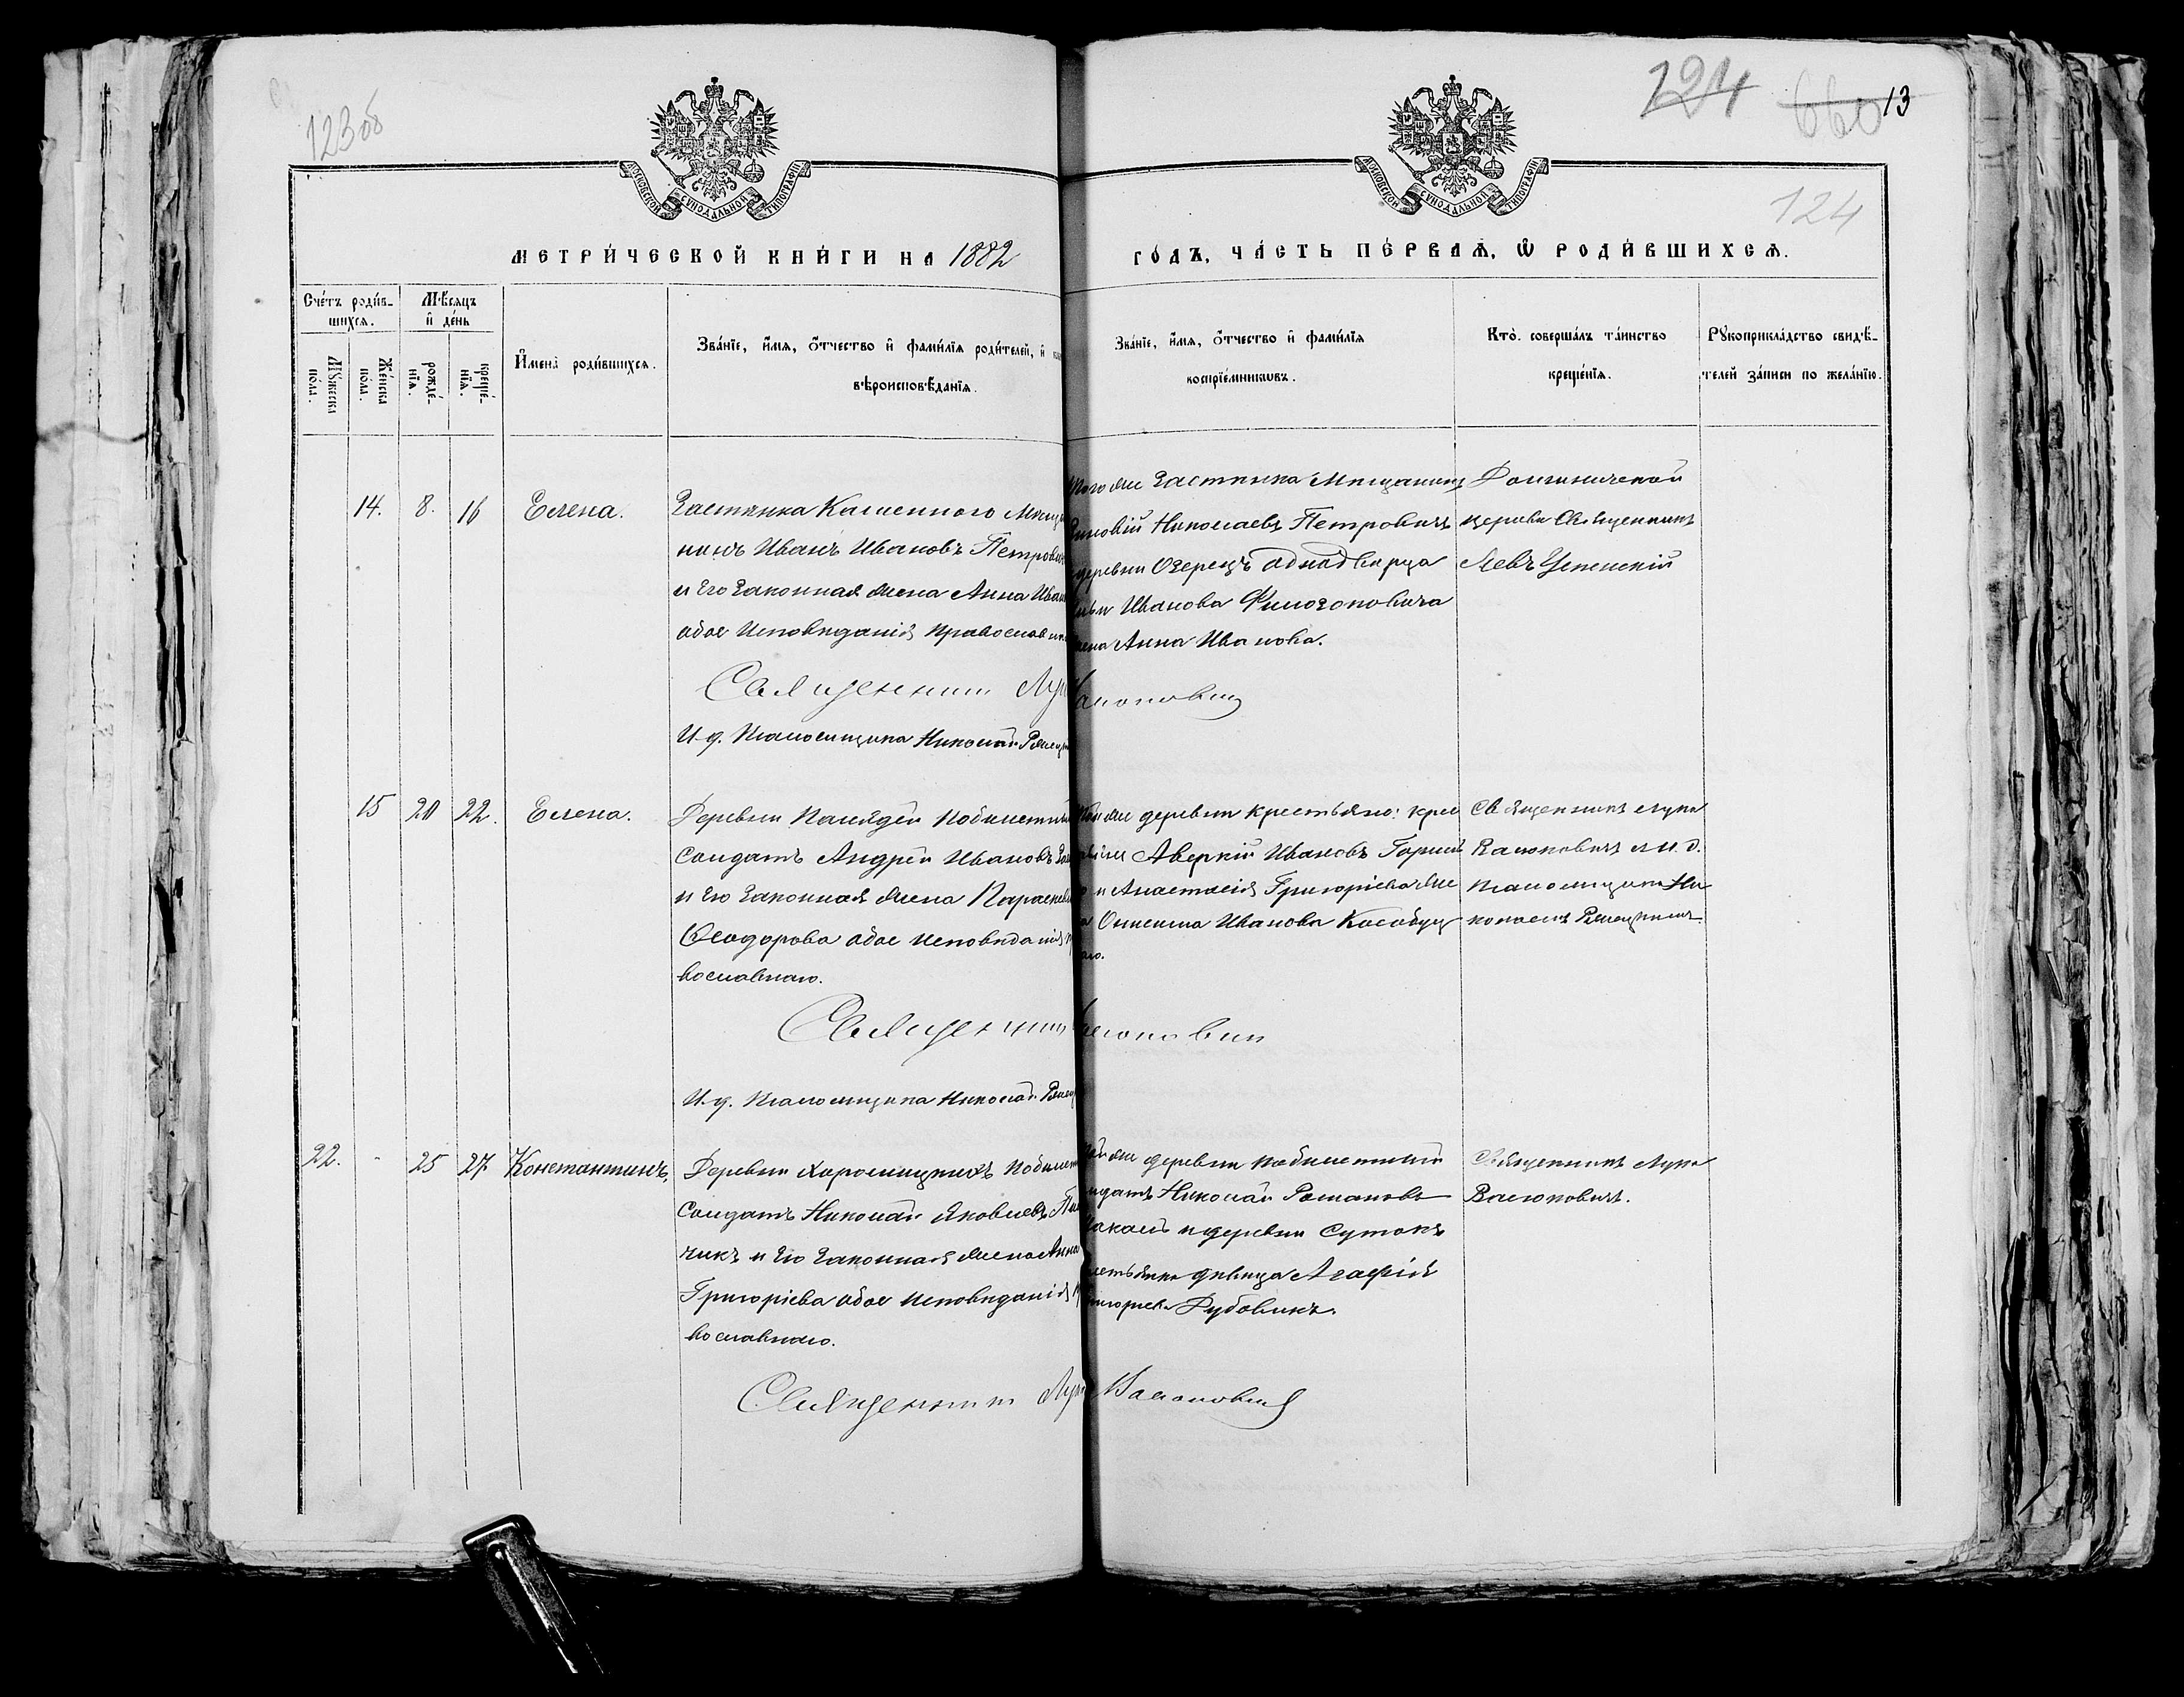 123 об
124
660
13
124
МОСКОВСКОЙ СѴНОДАЛЬНОЙ ТИПОГРАФІИ
МОСКОВСКОЙ СѴНОДАЛЬНОЙ ТИПОГРАФІИ
МЕТРИ́ЧЕСКОЙ КНИ́ГИ НА 1882
ГО́ДЪ, ЧА́СТЬ ПЕ́РВАѦ, Ѽ РОДИ́ВШИХСѦ.
Сче́тъ роди́в-
шихсѧ.
Мѣ́сяцъ
и҆ де́нь
Мꙋ́жеска
по́ла.
Же́нска
по́ла.
рожде́-
нїѧ.
креще́-
нїѧ.
И҆мена̀ роди́вшихсѧ.
Зва́нїе, и҆́мѧ, ѻ҆́тчество и҆ фами́лїѧ роди́телей, и҆
вѣроисповѣ́данїѧ.
Зва́нїе, и҆́мѧ, ѻ҆́тчество и҆ фами́лїѧ
воспрїе́мникѡвъ.
Кто̀ соверша́лъ та́инство
креще́нїѧ.
Рꙋкоприкла́дство свидѣ́-
телей за́писи по жела́нїю.
14. 8. 16 Елена.
Застѣнка Каменного Мѣща
нинъ Иванъ Ивановъ Петрович
и Его законная жена Анна Иван
обое Исповѣданія православн
Того же Застѣнка Мѣщанинъ
Зиновій Николаевъ Петровичъ
деревни Озерецъ однодворца
Иванова Филозоповича
жена Анна Иванова.
церкви Священникъ
Левъ Успенскій
Священник Лук
алюкович
И. д. Псаломщика Николай
15 20 22. Елена.
Деревни Побилетный
Солдатъ Андрей Ивановъ
и Его законная жена Параскева
Ѳеодорова обое Исповѣданія п
вославнаго.
же деревни крестьяне: крес
Аверкій Ивановъ
и Анастасія Григоріева же
Онисима Иванова
Священникъ Лука
Валюковичъ и И. д.
псаломщика Ни
колаемъ
Священник
алюкович
И. д. Псаломщика Николай
22. - 25 27 Константинъ.
Деревни Хоромицкихъ побилет
Солдатъ Николай Яковлевъ
чикъ и Его законная жена Анна
Григоріева обое Исповѣданія п
вославнаго.
же деревни побилетный
Солдатъ Николай Романовъ
и деревни Сутокъ
крестьянка дѣвица Агафія
Григорьева Дубовикъ.
Священникъ Лука
Валюковичъ.
Священник Лука Валюкович